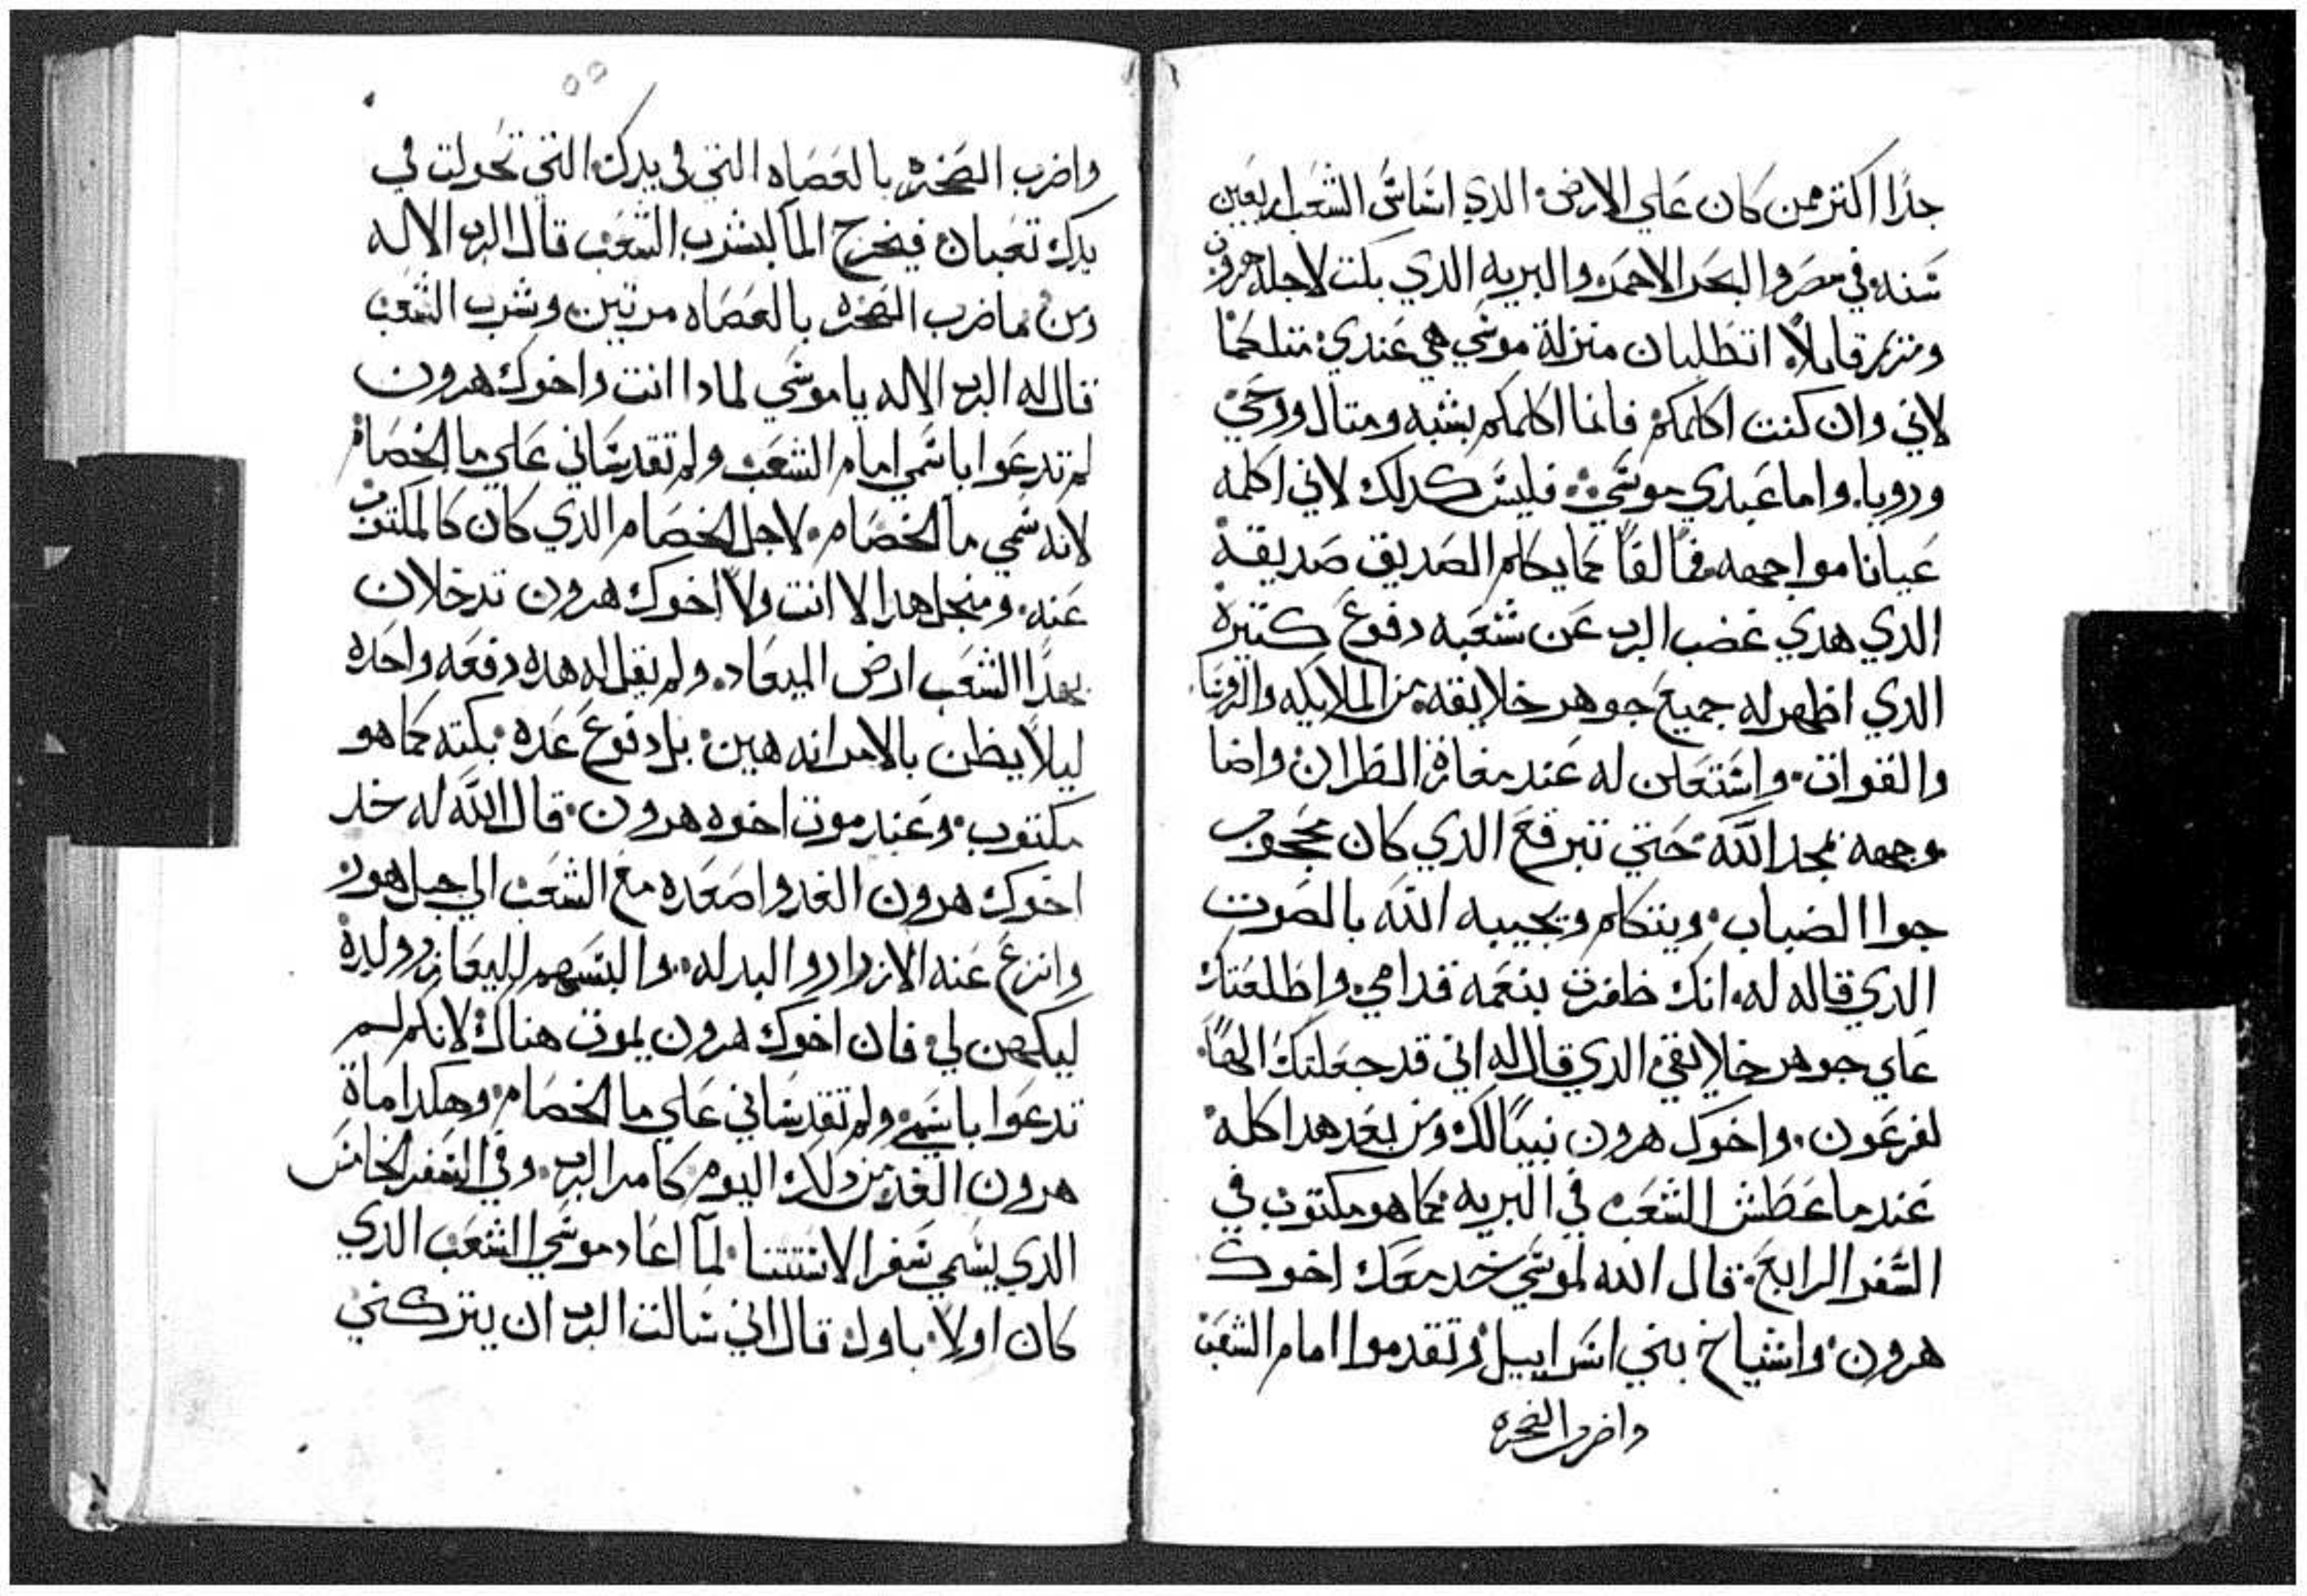 جدًا اكتر ممن كان علي الارض. الدي اساس الشعب اربعين
سنه في مصر والبحر الاحمر والبريه الدي بكت لاجله هرون
ومريم قايلاً. اتطلبان منزلة موسي هي عندي متلكما
لاني وان كنت اكلمكم فانما اكلمكم بشبه ومتال ووحي
ورويا. واما عبدي موسي. فليس كدلك لاني اكلمه
عيانا مواجهه فمًا لفمًا كما يكلم الصديق صديقه
الدي هدي غضب الرب عن شعبه دفوع كتيرة
الدي اظهر له جميع جوهر خلايقه من الملايكه والروسا
والقوات. واستعلن له عند مغارة الظران واضا
وجهه بمجد الله. حتي تبرقع الدي كان محجوب
جوا الضباب. ويتكلم ويجيبه الله بالصوت
الدي قاله له. انك ظفرت بنعمه قدامي. واطلعتك
علي جوهر خلايقي. الدي قال له اني قد جعلتك الهًا.
لفرعون. واخوك هرون نبيًا لك ومن بعد هدا كله
عندما عطش الشعب في البريه كما هو مكتوب في
السفر الرابع. قال الله لموسي خد معك اخوك
هرون. واشياخ بني اسراييل. وتقدموا امام الشعب
واضرب الصخره
واضرب الصخره بالعصاه التي في يدك. التي تحولت في
يدك تعبان فيخرج الما ليشرب الشعب قال الرب الاله
ومن ما ضرب الصخره بالعصاه مرتين. وشرب الشعب
قال له الرب الاله يا موسي لمادا انت واخوك هرون
لم تدعوا باسمي امام الشعب ولم تقدساني علي ما الخصام
لانه سمي ما الخصام. لاجل الخصام الدي كان كالمكتوب
عنه. ومنجل هدا لا انت ولا اخوك هرون تدخلان
بهدا الشعب ارض الميعاد. ولم يقل له هده دفعه واحده
ليلا يظن بالامر انه هين. بل دفوع عده. بكته كما هو
مكتوب. وعند موت اخوه هرون. قال الله له خد
اخوك هرون الغد واصعده مع الشعب الي جبل هور
وانزع عنه الازرار والبدله. والبسهم لليعازر ولده
ليكهن لي. فان اخوك هرون يموت هناك. لانكم لم
تدعوا باسمي. ولم تقدساني علي ما الخصام. وهكدا مات
هرون الغد من دلك اليوم. كامر الرب. وفي السفر الخامس
الدي يسمي سفر الاستتنا. لما اعاد موسي الشعب الدي
كان اولا باول. قال اني سالت الرب ان يتركني